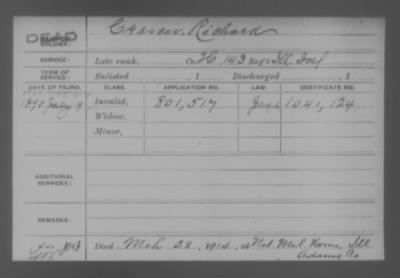 DEAD Craver, Richard
SOLDIER:
SERVICE: Late rank, Co. H, 143 Reg't Ill. Inf
TERM OF SERVICE: Enlisted , 1 Discharged , 1
DATE OF FILING. CLASS. APPLICATION NO. LAW. CERTIFICATE NO.
1890 July 9 Invalid, 801,517 1041,124
Widow,
Minor,
ADDITIONAL SERVICES:
REMARKS:
Died Mch 28, 1914, at Nat Mil Home, Ill
Adams Co